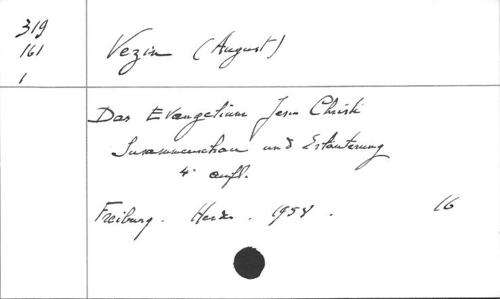 319
161
1
Vezin (August)
Das Evangelium Jesu Christi
Zusammenschau und Erläuterung
4. aufl.
Freiburg. Herder. 1958.
16